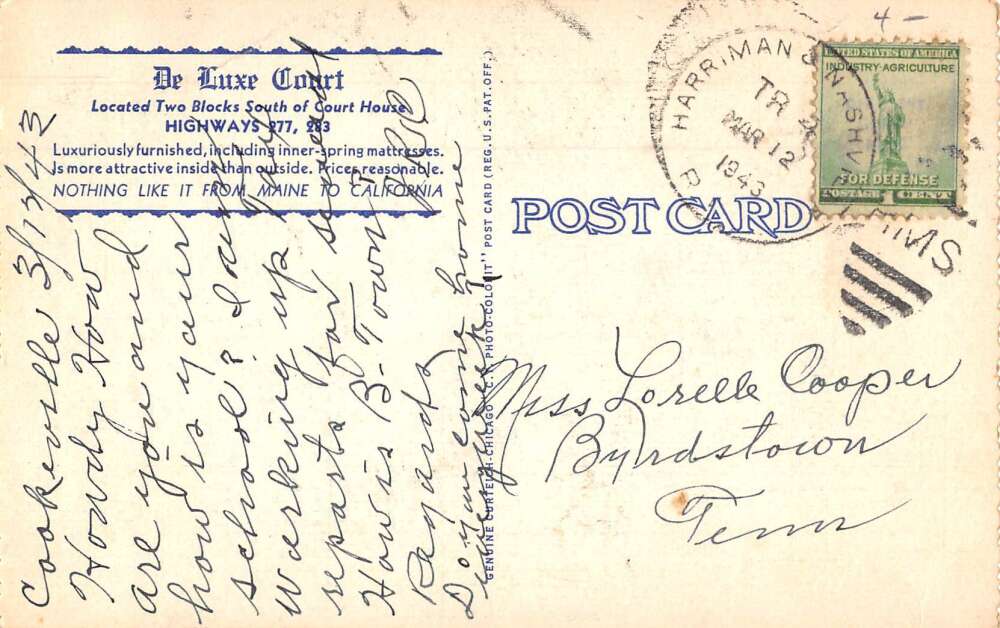 De Luxe Court
Located Two Blocks South of Court House
HIGHWAYS 277, 283
Luxuriously furnished, including inner-spring mattresses.
Is more attractive inside than outside. Prices reasonable.
NOTHING LIKE IT FROM MAINE TO CALIFORNIA
Cookeville 3/13/43
Howdy How
are you and
how is your
school? I am
working up
reports for
How is B-Town?
Regards
Do you come home
GENUINE CURTEICH-CHICAGO "C.T. PHOTO-COLORIT" POST CARD (REG. U.S. PAT. OFF.)
POST CARD
4-
HARRIMAN & NASHV
TR
MAR 12
1943
R.P.O.
RMS
UNITED STATES OF AMERICA
INDUSTRY-AGRICULTURE
FOR DEFENSE
POSTAGE 1 CENT
Miss Lorelle Cooper
Byrdstown
Tenn